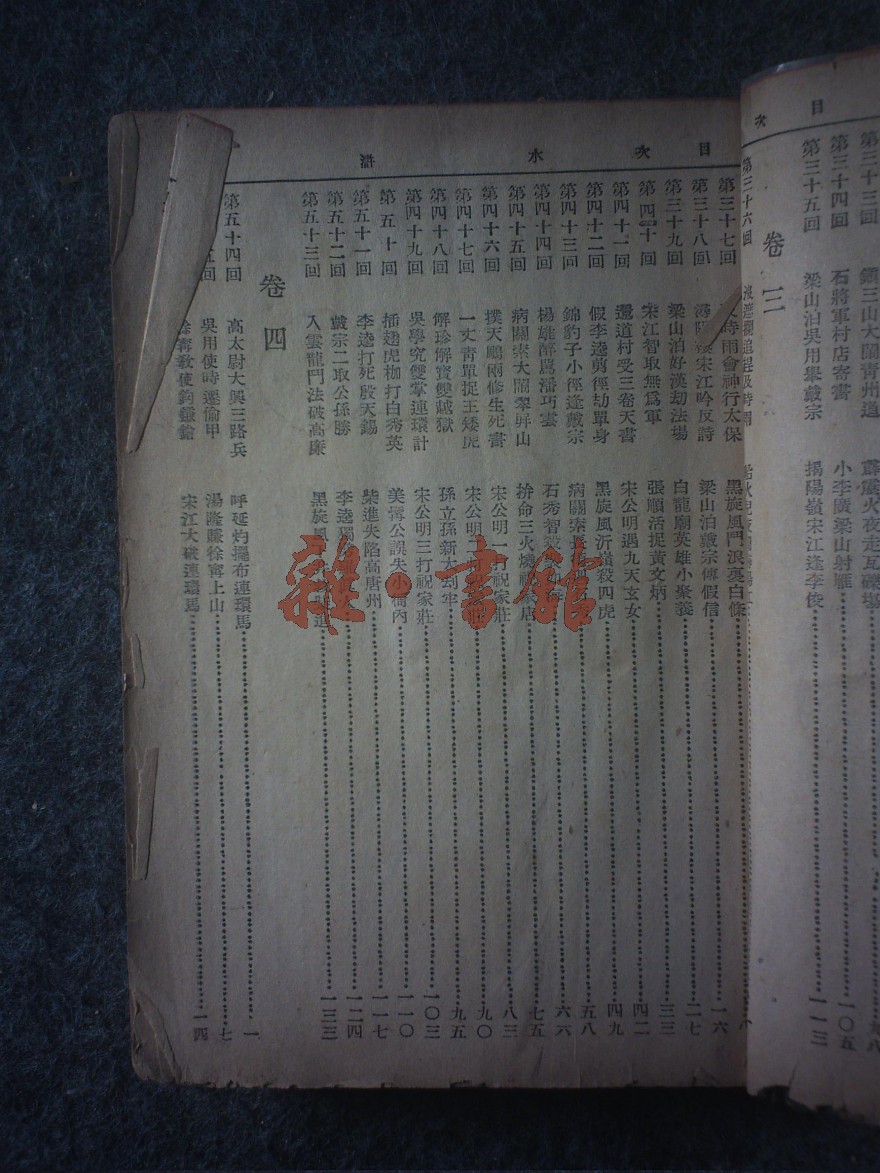 目次
第三十三回 鎮三山大鬧青州道 霹靂火夜走瓦礫場 九八
第三十四回 石將軍村店寄書 小李廣梁山射雁 一〇五
第三十五回 梁山泊吳用舉戴宗 揭陽嶺宋江逢李俊 一一三
卷三
第三十六回 沒遮攔追趕及時雨
目次 水滸
第三十七回 時雨會神行太保 黑旋風鬥浪裏白條 一六
第三十八回 潯陽 宋江吟反詩 梁山泊戴宗傳假信 二七
第三十九回 梁山泊好漢劫法場 白龍廟英雄小聚義 三三
第四十回 宋江智取無爲軍 張順活捉黃文炳 四二
第四十一回 還道村受三卷天書 宋公明遇九天玄女 四九
第四十二回 假李逵剪徑劫單身 黑旋風沂嶺殺四虎 五八
第四十三回 錦豹子小徑逢戴宗 病關索長 六六
第四十四回 楊雄醉罵潘巧雲 石秀智殺 七五
第四十五回 病關索大鬧翠屏山 拚命三火燒 店 八三
第四十六回 撲天鵰兩修生死書 宋公明一打祝家莊 九〇
第四十七回 一丈青單捉王矮虎 宋公明 九五
第四十八回 解珍解寶雙越獄 孫立孫新大劫牢 一〇三
第四十九回 吳學究雙掌連環計 宋公明三打祝家莊 一一〇
第五十回 插翅虎枷打白秀英 美髯公誤失小衙內 一一七
第五十一回 李逵打死殷天錫 柴進失陷高唐州 一二四
第五十二回 戴宗二取公孫勝 李逵獨 一三三
第五十三回 入雲龍鬥法破高廉 黑旋風
卷四
第五十四回 高太尉大興三路兵 呼延灼擺布連環馬 一
五回 吳用使時遷偷甲 湯隆賺徐寧上山 七
徐寧教使鉤鐮鎗 宋江大破連環馬 一四
雜·書館